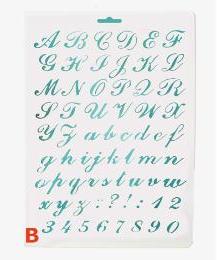 A B C D E F
G H I J K L
M N O P Q R
S T U V W X
Y Z a b c d e f
g h i j k l m n
o p q r s t u v w
x y z : ? ! : 1 2
3 4 5 6 7 8 9 0
B